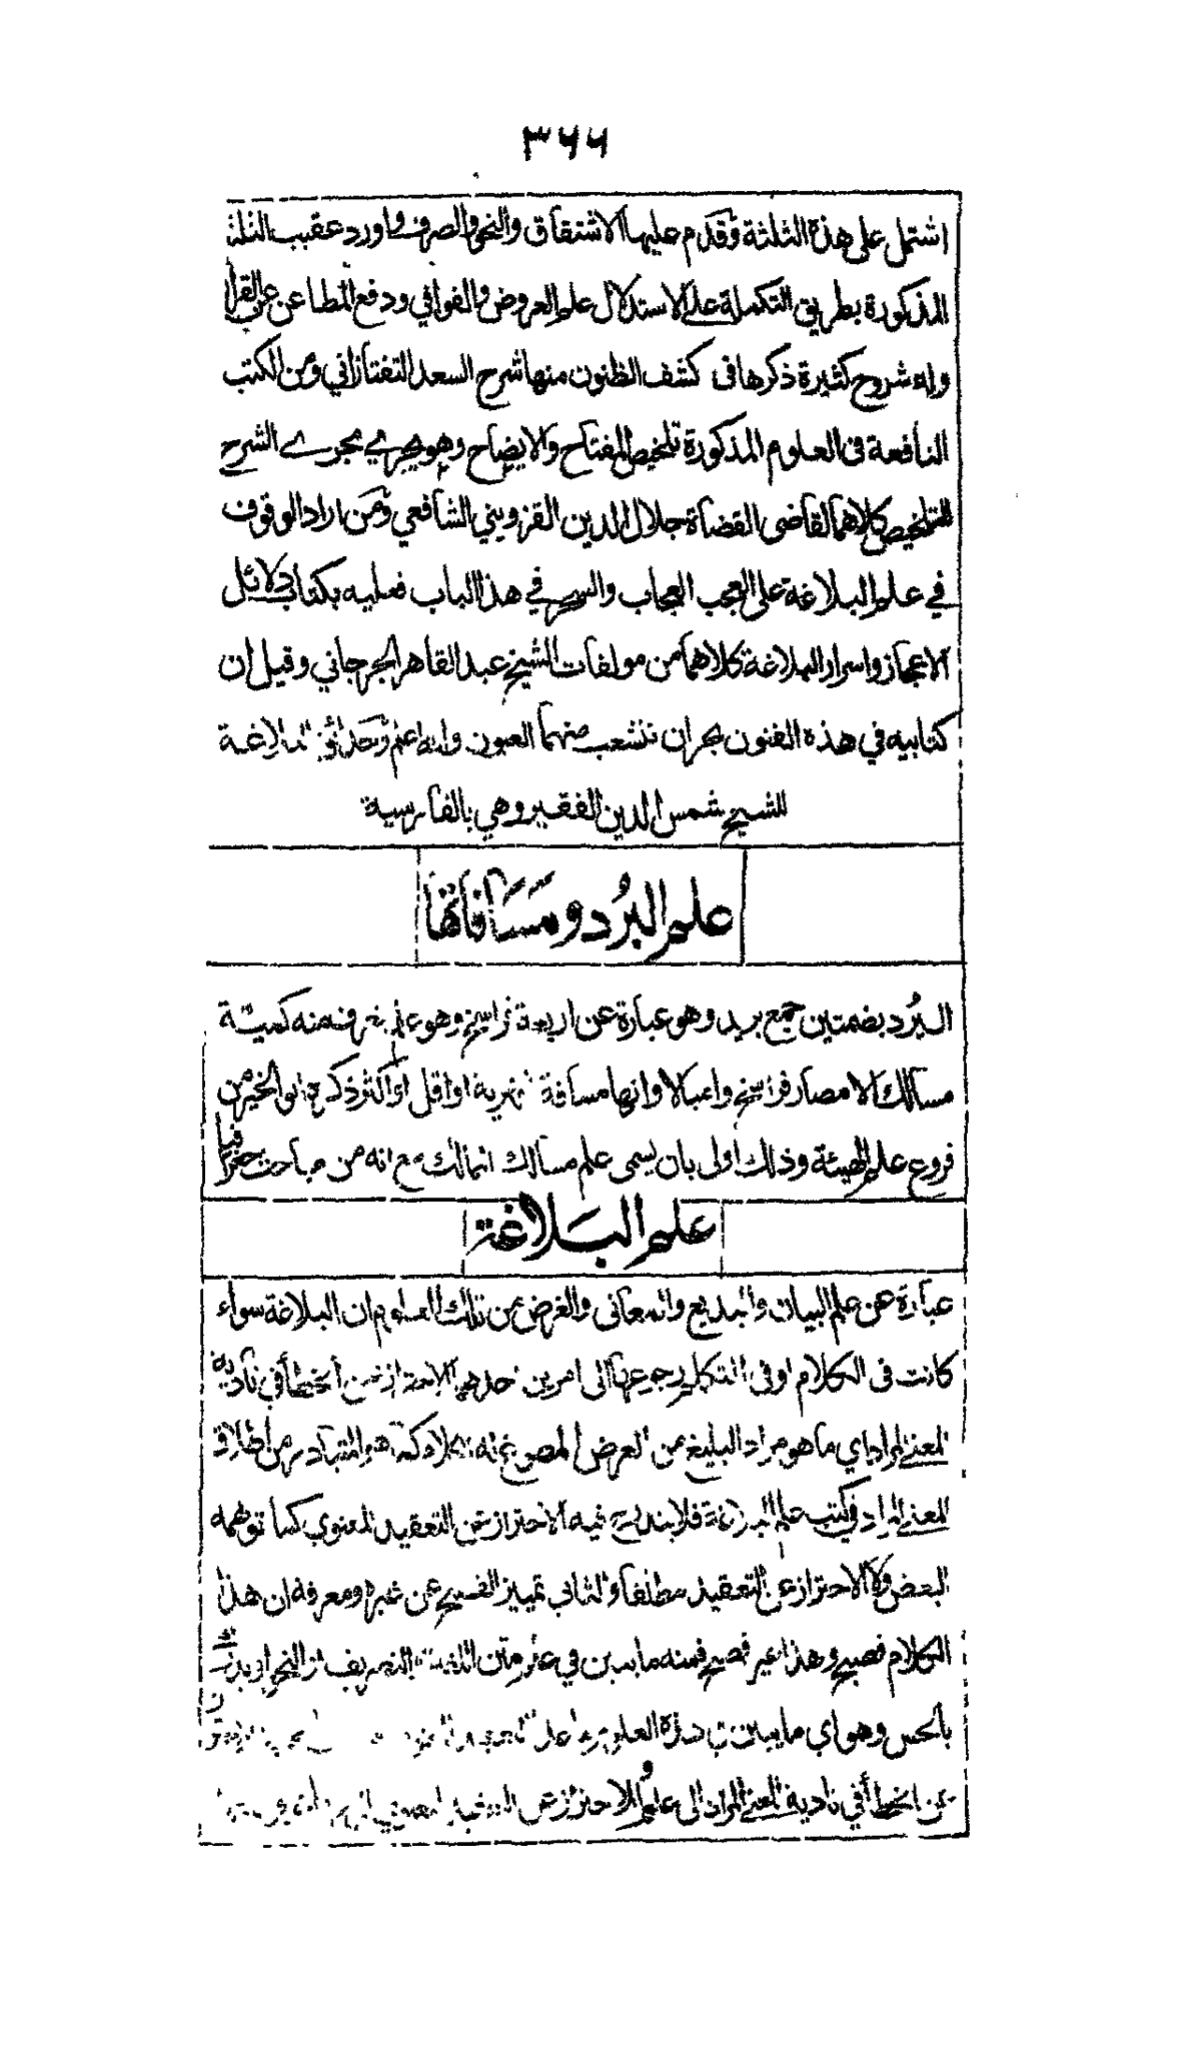 ٣٦٦
اشتمل على هذه الثلثة وقدم عليها الاشتقاق والنحو والصرف واورد عقيب الثلثة
المذكورة بطريق التكملة علم الاستدلال علم العروض والقوافي ودفع المطاعن عن القرآن
وله شروح كثيرة ذكرها في كشف الظنون منها شرح السعد التفتازاني ومن الكتب
النافعة في العلوم المذكورة تلخيص المفتاح والايضاح وهو يجري مجرى الشرح
للتلخيص كلاهما لقاضى القضاة جلال الدين القزويني الشافعي ومن اراد الوقوف
في علم البلاغة على العجب العجاب والسحر في هذا الباب فعليه بكتاب دلائل
الاعجاز واسرار البلاغة كلاهما من مولفات الشيخ عبد القاهر الجرجاني وقيل ان
كتابيه في هذه الفنون بحران تنشعب منهما العيون والله اعلم وحدائق البلاغة
للشيخ شمس الدين الفقير وهي بالفارسية
علم البُرُد ومَسَافَاتها
البُرُد بضمتين جمع بريد وهو عبارة عن اربعة فراسخ وهو علم يعرف منه كمية
مسالك الامصار فراسخ واميالا وانها مسافة شهرية او اقل او اكثر ذكره ابو الخير من
فروع علم الهيئة وذلك اولى بان يسمى علم مسالك الممالك مع انه من مباحث جغرافيا
علم البَلاغة
عبارة عن علم البيان والبديع والمعاني والغرض من تلك العلوم ان البلاغة سواء
كانت في الكلام او في المتكلم رجوعها الى امرين احدهما الاحتراز عن الخطأ في تأدية
المعنى المراد اي ما هو مراد البليغ من الغرض المصوغ له الكلام كما هو المتبادر من اطلاق
المعنى المراد في كتب علم البلاغة فلا يندرج فيه الاحتراز عن التعقيد المعنوي كما توهمه
البعض ولا الاحتراز عن التعقيد مطلقا والثاني تمييز الفصيح عن غيره ومعرفة ان هذا
الكلام فصيح وهذا غير فصيح فمنه ما يبين في علم متن اللغة او التصريف او النحو او يدرك
بالحس وهو اي ما يبين في هذه العلوم ما عدا التعقيد المعنوي
عن الخطأ في تادية المعنى المراد الى علم والاحتراز عن التعقيد المعنوي الى